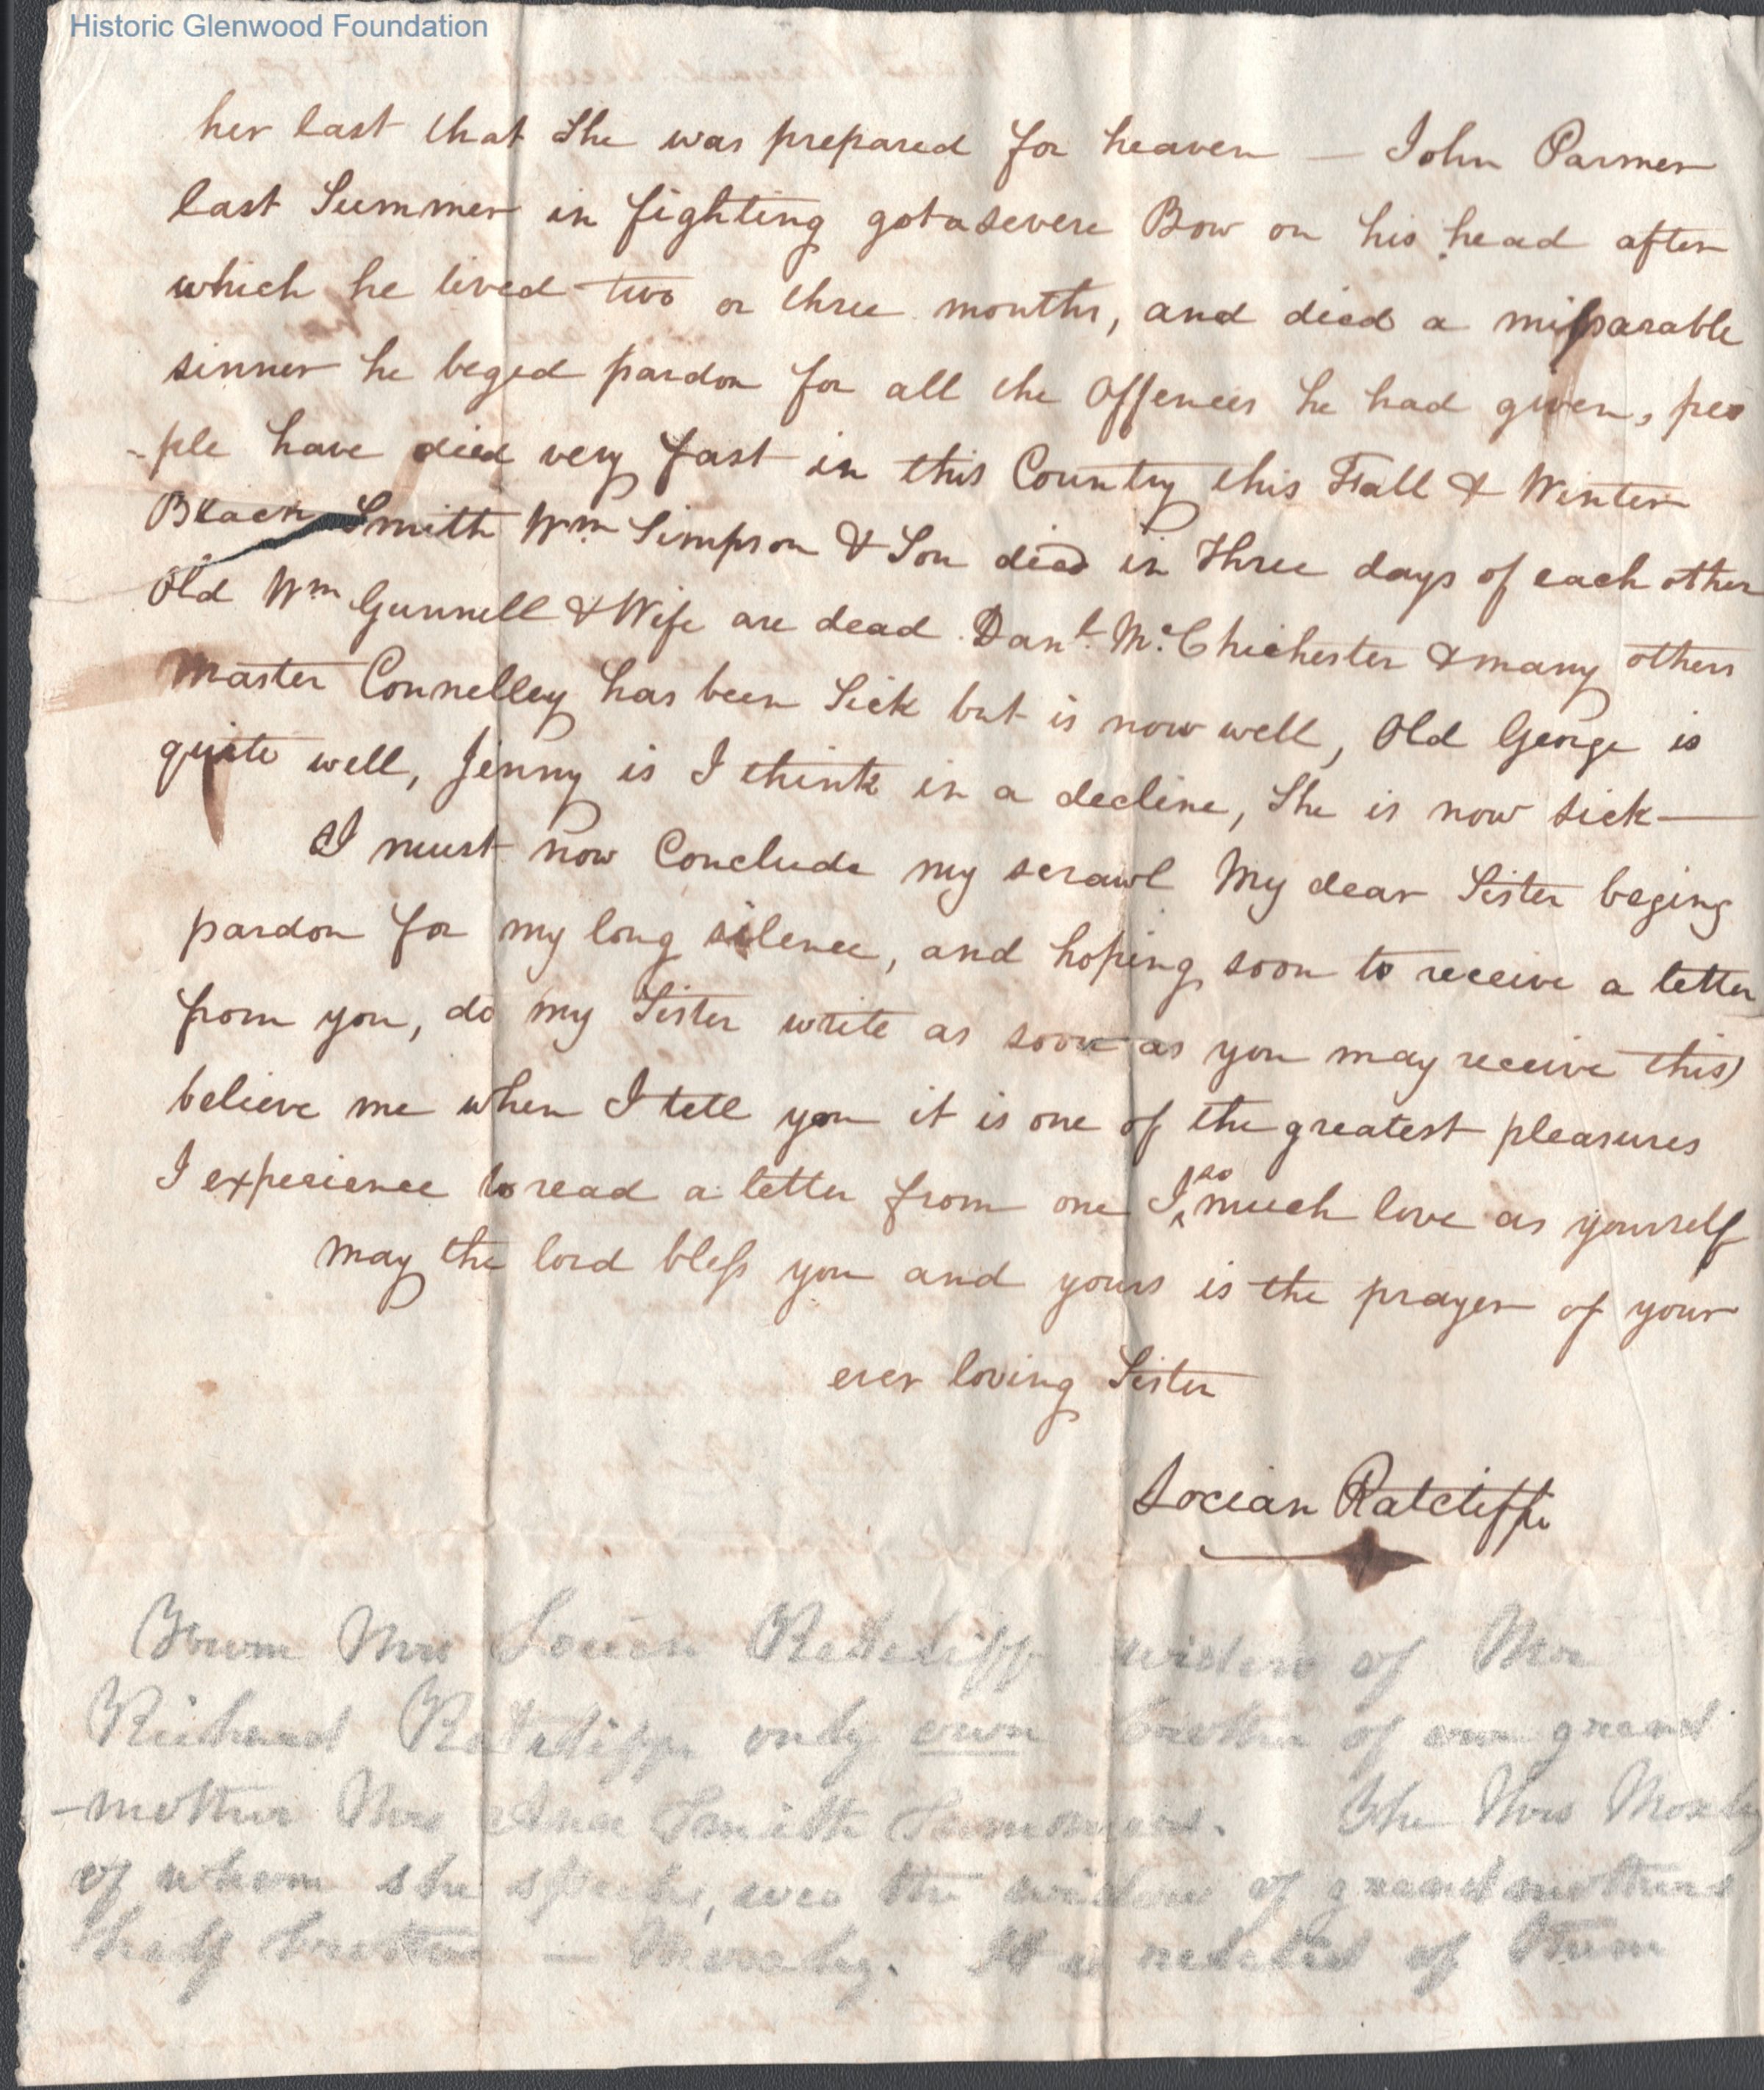 Historic Glenwood Foundation
her last that She was prepared for heaven — John Parmer
last Summer in fighting got a severe Bow on his head after
which he lived two or three months, and died a missarable
sinner he beged pardon for all the Offences he had given, peo
-ple have died very fast in this Country this Fall & Winter
Black Smith Wm Simpson & Son died in Three days of each other
Old Wm Gunnell & Wife are dead. Danl. Mc. Chichester & many others
Master Connelley has been Sick but is now well, Old George is
quite well, Jenny is I think in a decline, She is now sick —
I must now Conclude my scrawl My dear Sister beging
pardon for my long silence, and hoping soon to receive a letter
from you, do my Sister write as soon as you may receive this)
believe me when I tell you it is one of the greatest pleasures
I experience to read a letter from one I so much love as yourself
May the lord bless you and yours is the prayer of your
ever loving Sister
Locian Ratcliffe
From Mrs Ratcliff widow of Mr
Richard Ratcliff only own brother of our grand
-mother Mrs Smith Summers. The Mrs Moxley
of whom she speaks, was the widow of grandmothers
half brother — Moxley. It is related of